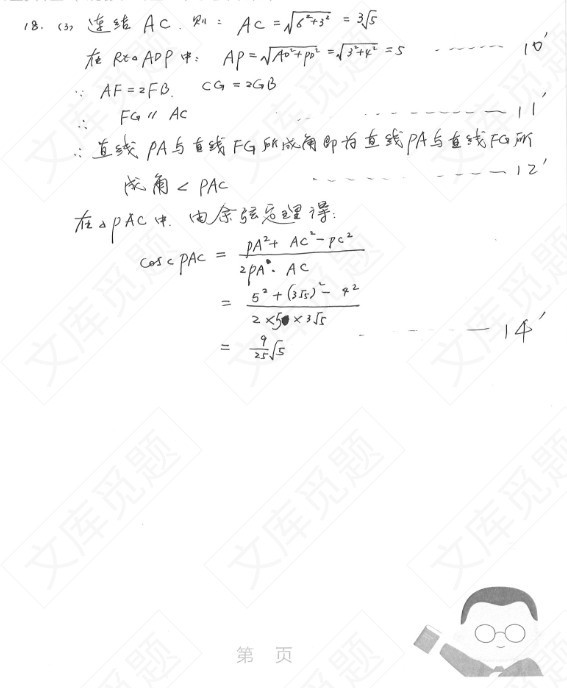 18. (3) 连结 AC. 则: AC = √(6²+3²) = 3√5
在 Rt△ADP 中: AP = √(AD²+PD²) = √(3²+4²) = 5 ------- 10'
∵ AF=2FB. CG=2GB
∴ FG∥AC ------- 11'
∴ 直线 PA 与直线 FG 所成角即为直线 PA 与直线 FG 所
成角∠PAC ------- 12'
在△PAC 中. 由余弦定理得:
cos∠PAC = (PA²+AC²-PC²)/(2PA·AC)
= (5²+(3√5)²-4²)/(2×5×3√5)
= 9/25 √5 ------- 14'
第 页
文库觅题